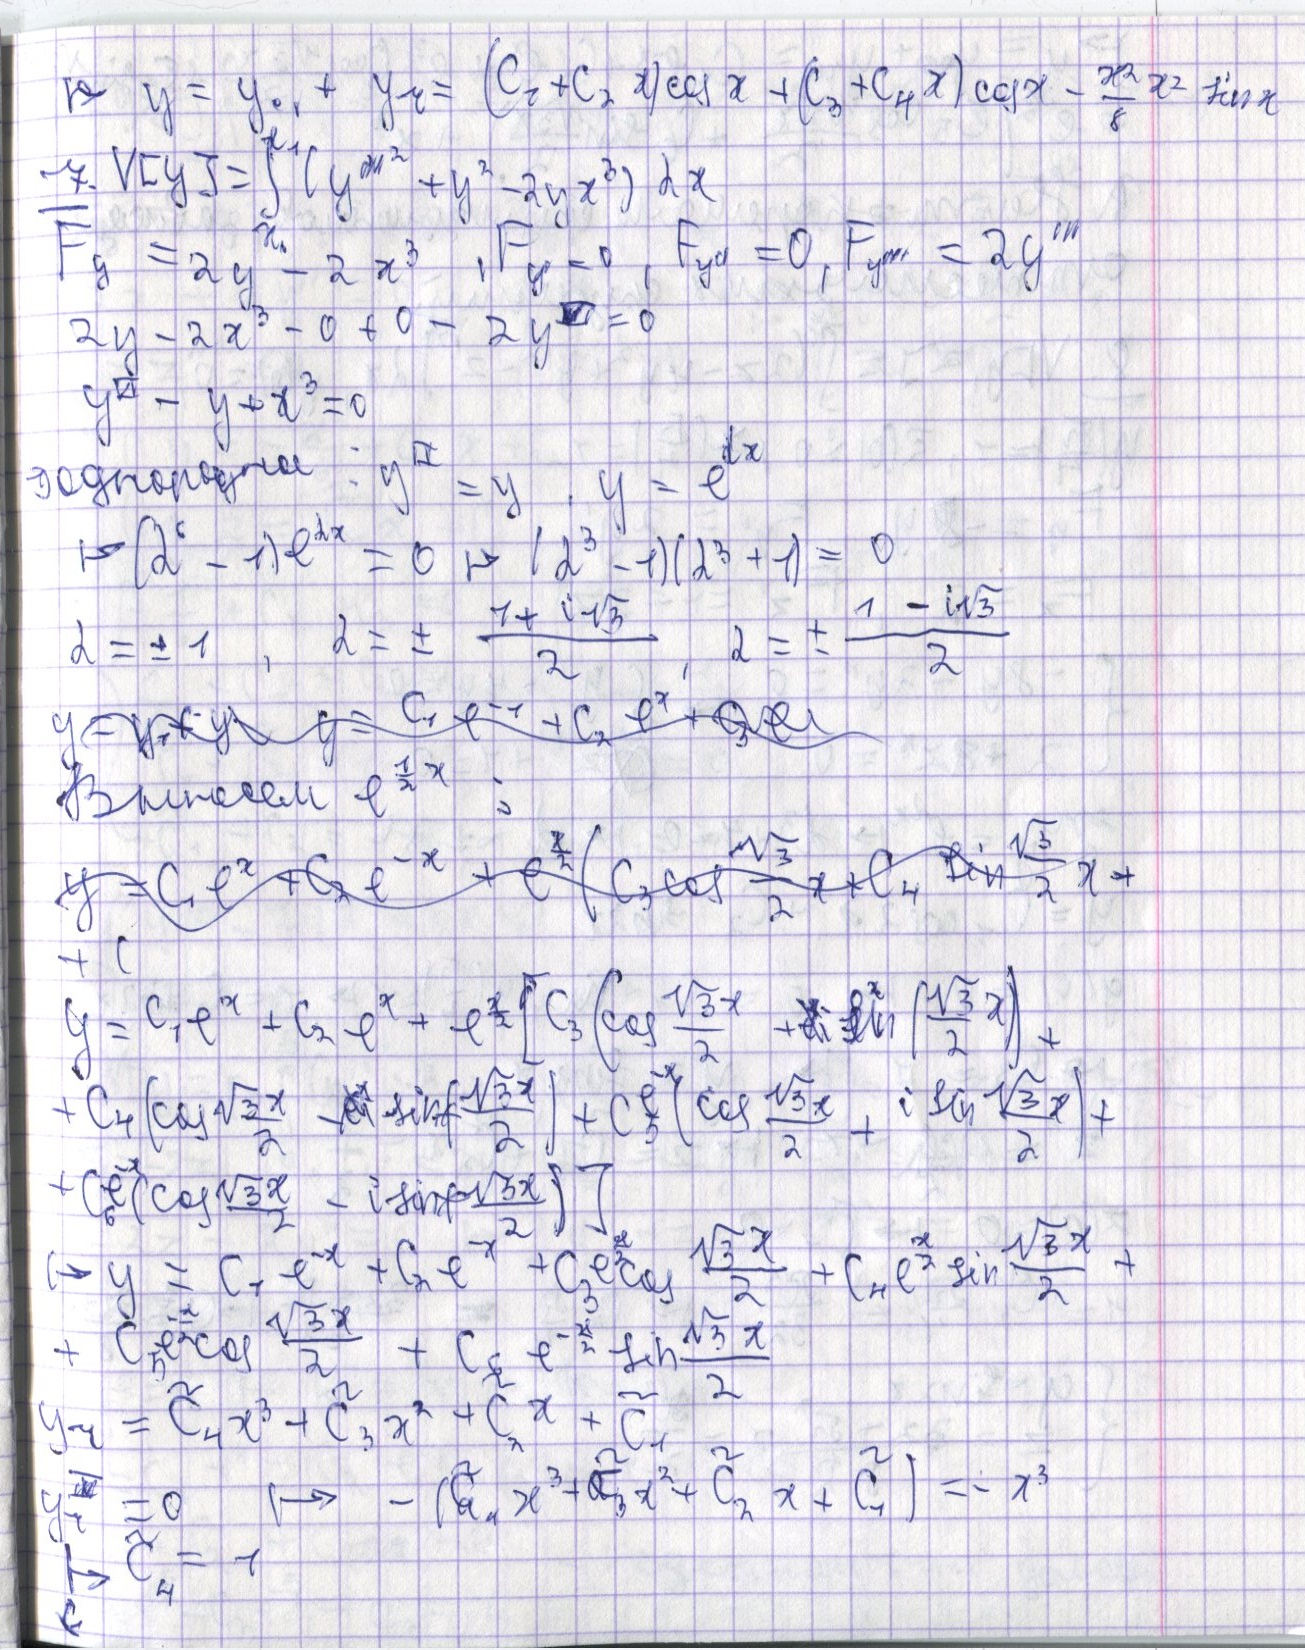 ↦ y = y₀.₁ + yᵣ = (C₁ + C₂ x) cos x + (C₃ + C₄ x) cos x - x²/8 x² sin x
7. V[y] = ∫_{x₀}^{x₁} (y'''² + y² - 2yx³) dx
F_y = 2y - 2x³, F_y' = 0, F_y'' = 0, F_y''' = 2y'''
2y - 2x³ - 0 + 0 - 2y^{VI} = 0
y^{VI} - y + x³ = 0
однородна : y^{VI} = y . y = e^{λx}
↦ (λ⁶ - 1) e^{λx} = 0 ↦ (λ³ - 1)(λ³ + 1) = 0
λ = ± 1 , λ = ± (1 + i√3)/2 , λ = ± (1 - i√3)/2
y = y = C₁ e^{-1} + C₂ e^x + C₃ e
Вынесем e^{½x} :
y = C₁ e^x + C₂ e^{-x} + e^{x/2} (C₃ cos √3/2 x + C₄ sin √3/2 x +
+ (
y = C₁ e^x + C₂ e^x + e^{x/2} [C₃ (cos √3x/2 + i sin (√3/2 x)) +
+ C₄ (cos √3x/2 - i sin(√3x/2) + C₅ e^{-x} (cos √3x/2 + i sin √3x/2) +
+ C₆ e^{-x} (cos √3x/2 - i sin √3x/2)]
↦ y = C₁ e^{-x} + C₂ e^{-x} + C₃ e^{x/2} cos √3x/2 + C₄ e^{x/2} sin √3x/2 +
+ C₅ e^{-x/2} cos √3x/2 + C₆ e^{-x/2} sin √3x/2
yᵣ = C̃₄ x³ + C̃₃ x² + C̃₂ x + C̃₁
yᵣ^{VI} = 0 ↦ - (C̃₄ x³ + C̃₃ x² + C̃₂ x + C̃₁) = - x³
↦ C̃₄ = 1